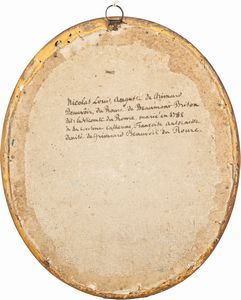 Nicolas Louis Auguste de Grimoard
Beauvoir, du Roure de Beaumont Brison
dit le Vicomte du Roure, marié en 1781
à sa cousine Catherine Françoise Antoinette
de Grimoard Beauvoir du Roure.